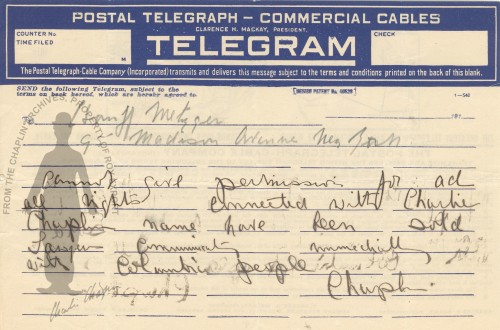 POSTAL TELEGRAPH - COMMERCIAL CABLES
CLARENCE H. MACKAY, PRESIDENT.
TELEGRAM
COUNTER No
TIME FILED
M
CHECK
The Postal Telegraph-Cable Company (Incorporated) transmits and delivers this message subject to the terms and conditions printed on the back of this blank.
SEND the following Telegram, subject to the
terms on back hereof, which are hereby agreed to.
191
To
Madison Avenue New York
Cannot give permission for ad
all rights connected with Charlie
Chaplin name have been sold
Communicate immediately
with Columbia people
Chaplin
FROM THE CHAPLIN ARCHIVES, PROPERTY OF